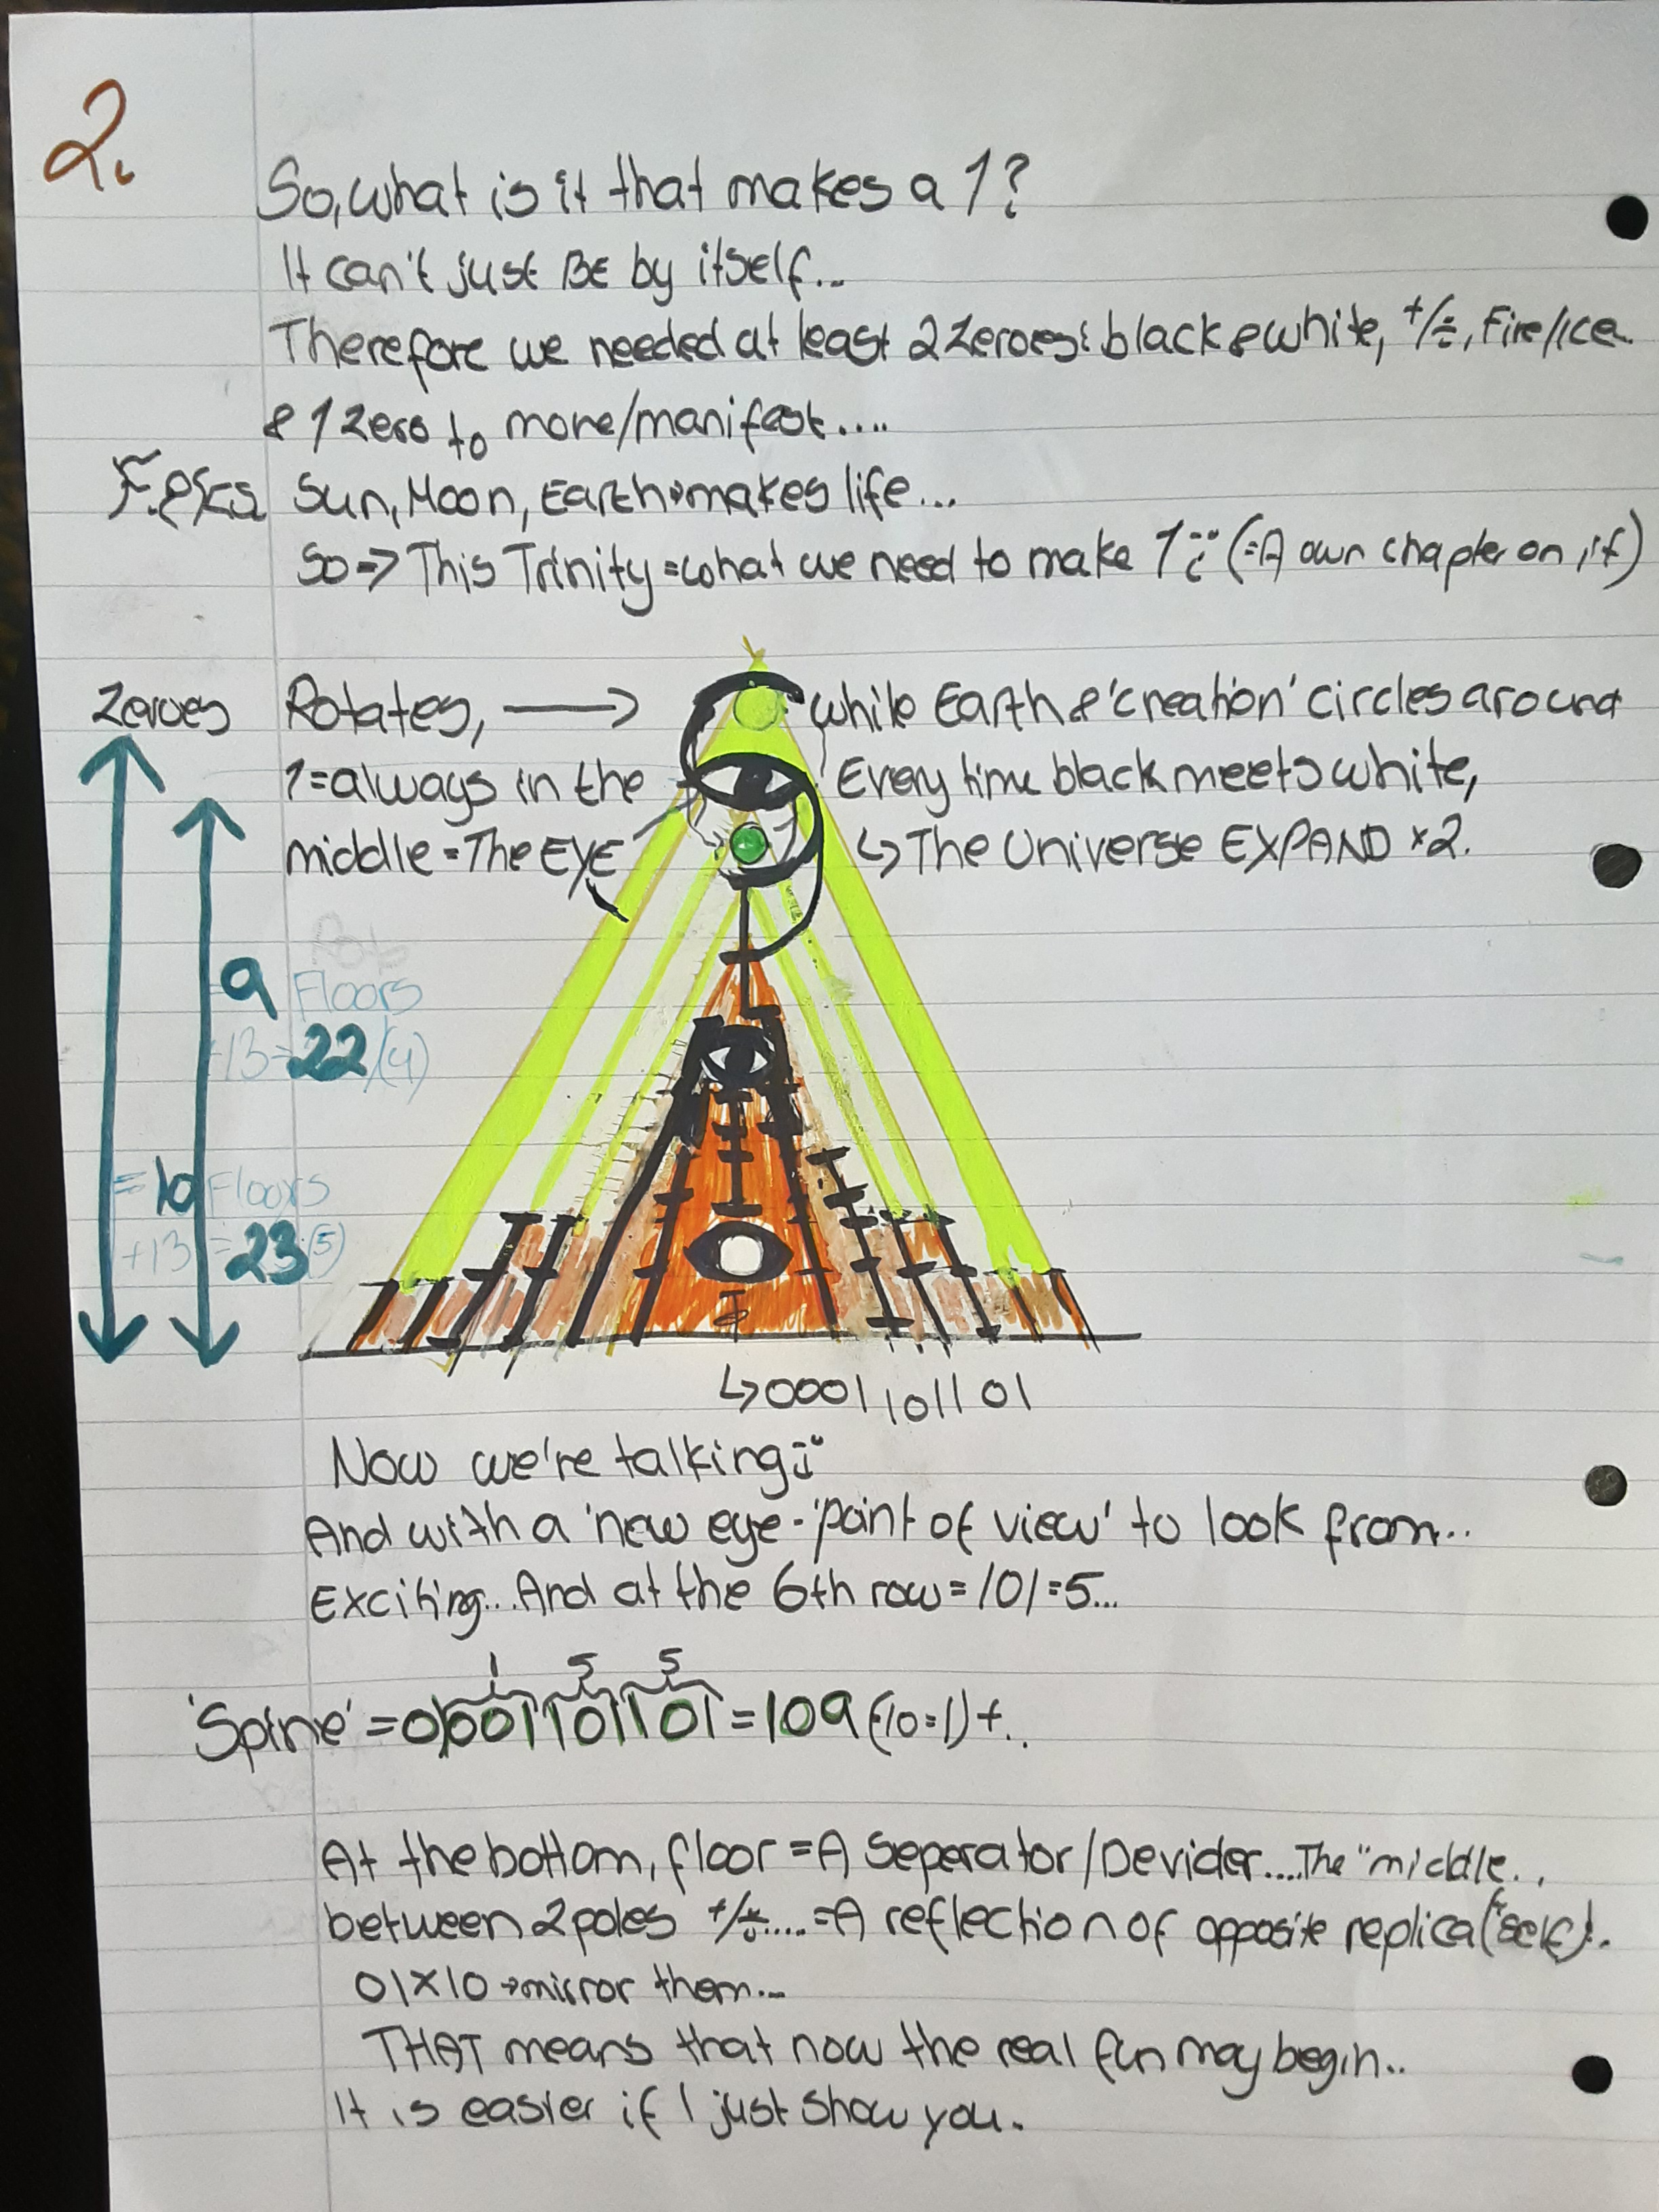 2.
So, what is it that makes a 1?
It can't just BE by itself...
Therefore we needed at least 2 zeroes: black & white, +/÷, Fire/Ice.
& 1 Zero to more/manifest....
F.eks. Sun, Moon, Earth→makes life...
So => This Trinity = what we need to make 1 (=A own chapter on it)
Zeroes Rotates, → while Earth & 'creation' circles around
1=always in the Every time black meets white,
middle = The EYE ↳ The Universe EXPAND x2.
= 9 Floors
+13=22/(4)
=10 Floors
+13 = 23(5)
↳0001101101
Now we're talking
And with a 'new eye-'point of view' to look from...
Exciting...And at the 6th row = 101 = 5...
1 5 5
'Spine' = 0001101101 = 109 (10=1) +..
At the bottom, floor = A Seperator/Devider....The "middle..
between 2 poles +/÷.... =A reflection of opposite replica ("self)!.
01x10 →mirror them...
THAT means that now the real fun may begin..
It is easier if I just show you.